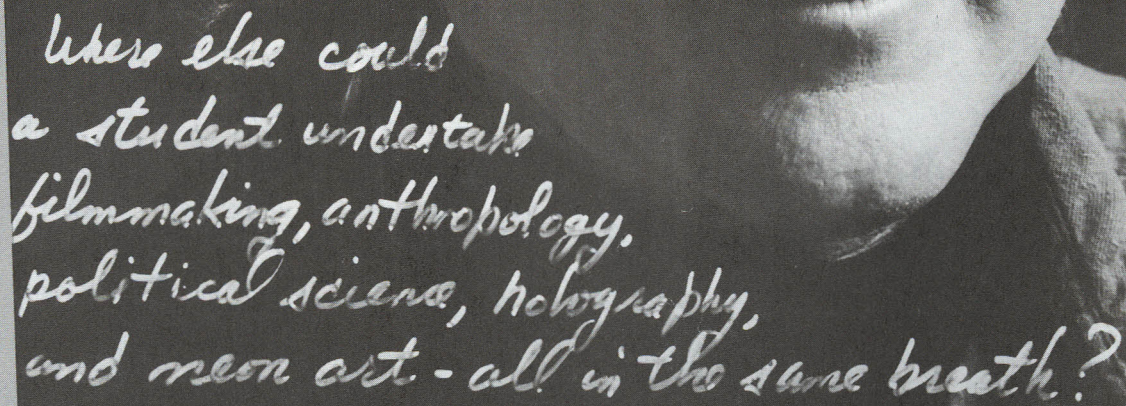 Where else could
a student undertake
filmmaking, anthropology,
political science, holography,
and neon art - all in the same breath?